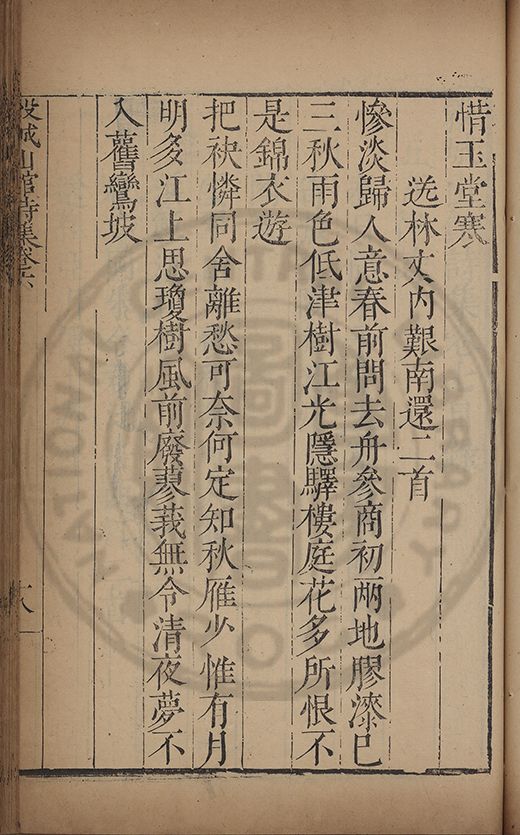 惜玉堂寒
送林丈內艱南還二首
慘淡歸人意春前問去舟參商初兩地膠漆已
三秋雨色低津樹江光隱驛樓庭花多所恨不
是錦衣遊
把袂憐同舍離愁可奈何定知秋雁少惟有月
明多江上思瓊樹風前廢蓼莪無令清夜夢不
入舊鸞坡
城山館詩集卷六